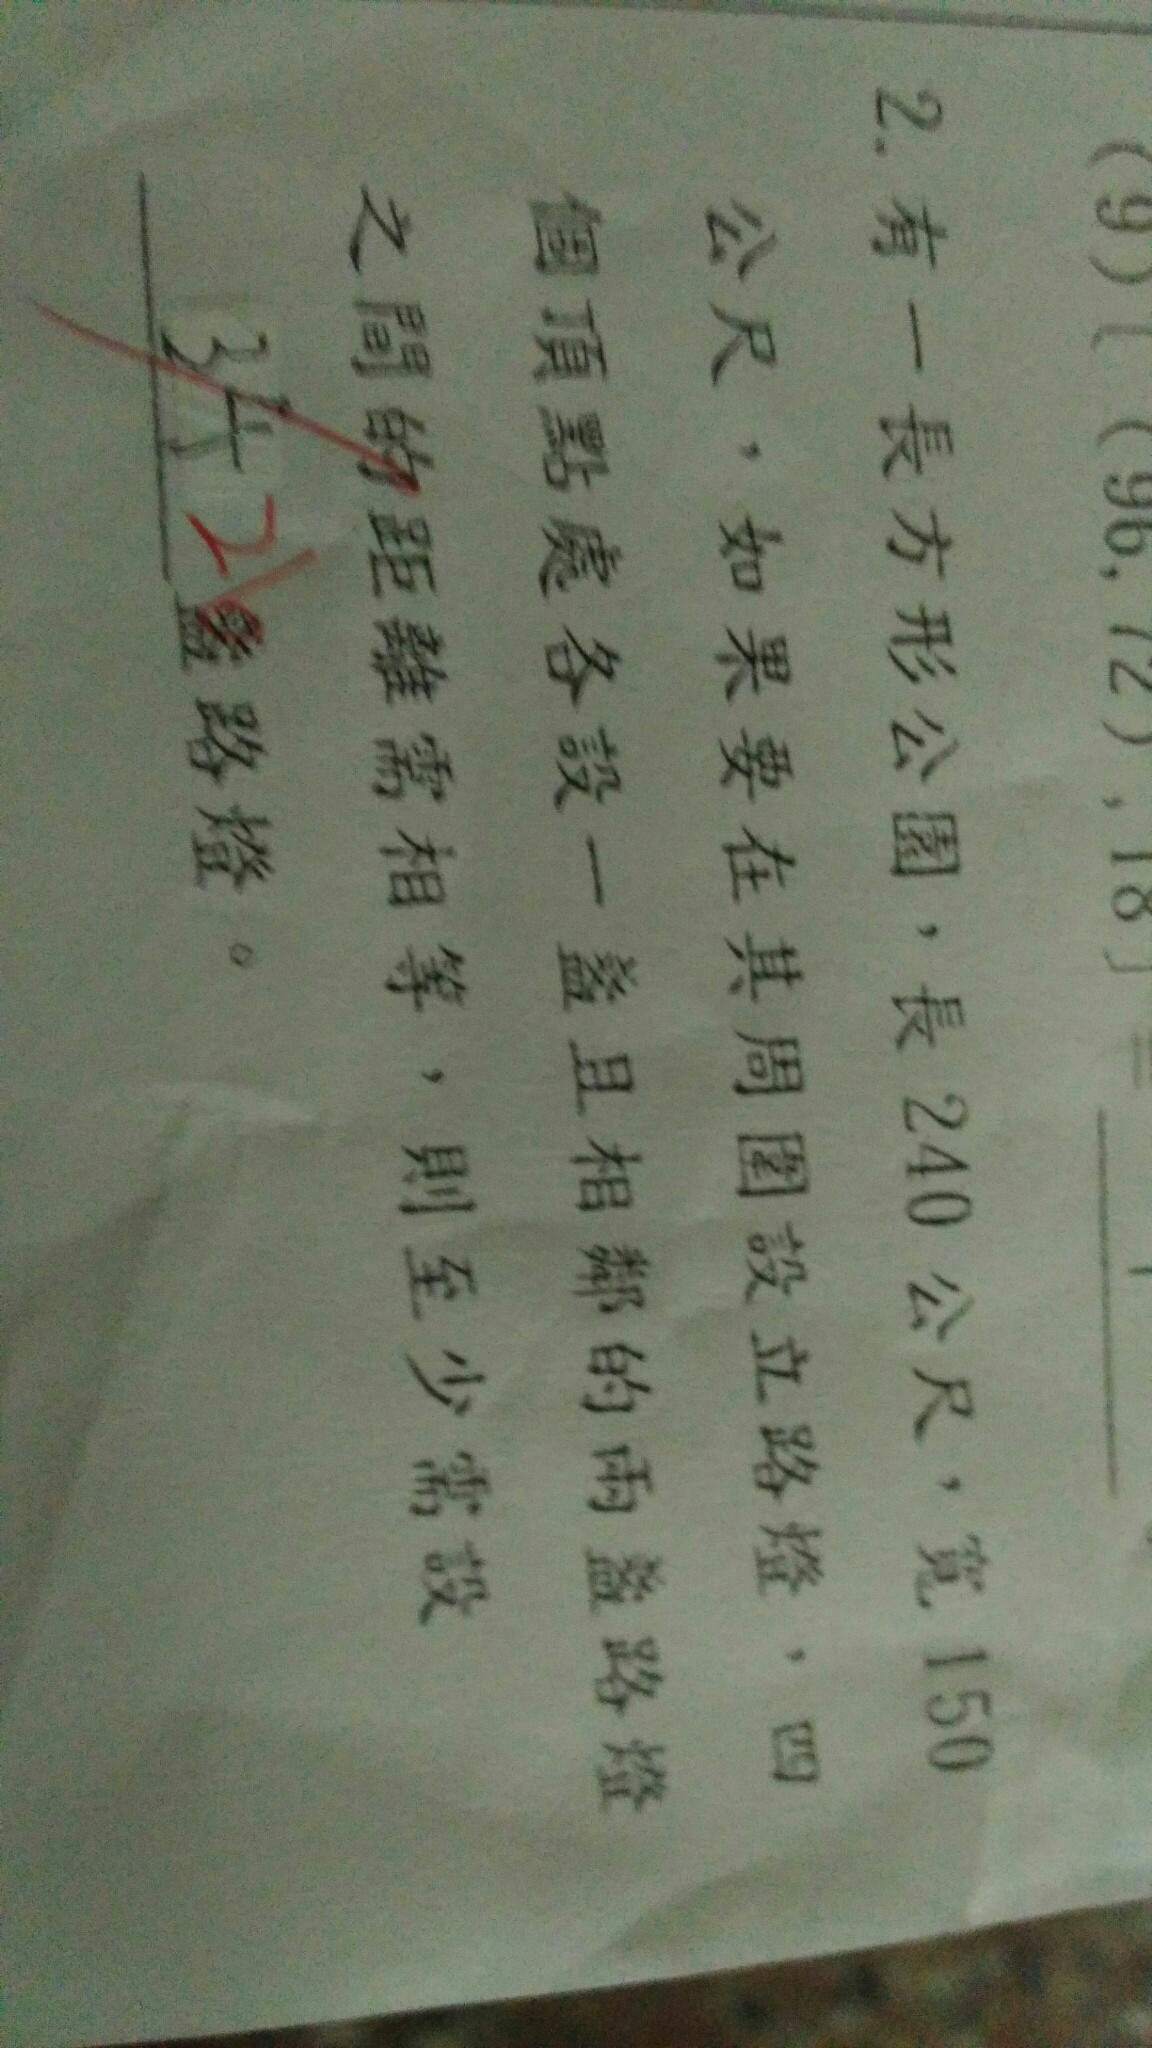 (9)[(96,72),18]=
2.有一長方形公園,長240公尺,寬150
公尺,如果要在其周圍設立路燈,四
個頂點處各設一盞且相鄰的兩盞路燈
之間的距離需相等,則至少需設
34 26盞路燈。